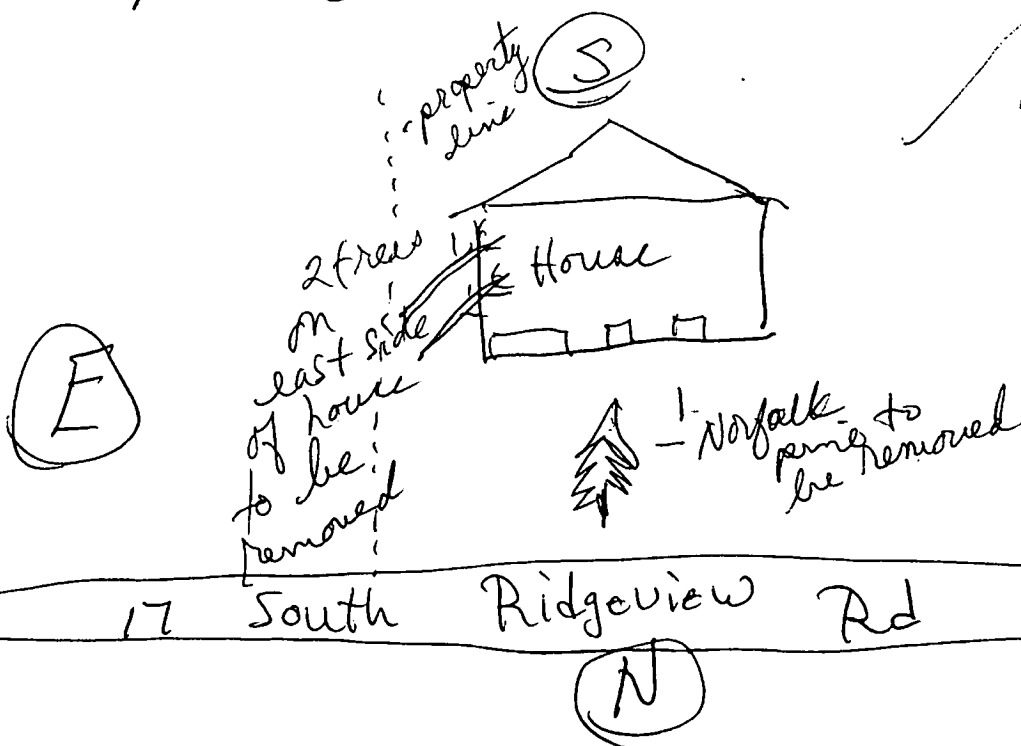 S
property
line
2 trees
on
east side
of house
to be
removed
House
E
1 Norfalk
pine to
be removed
17 South Ridgeview Rd
N